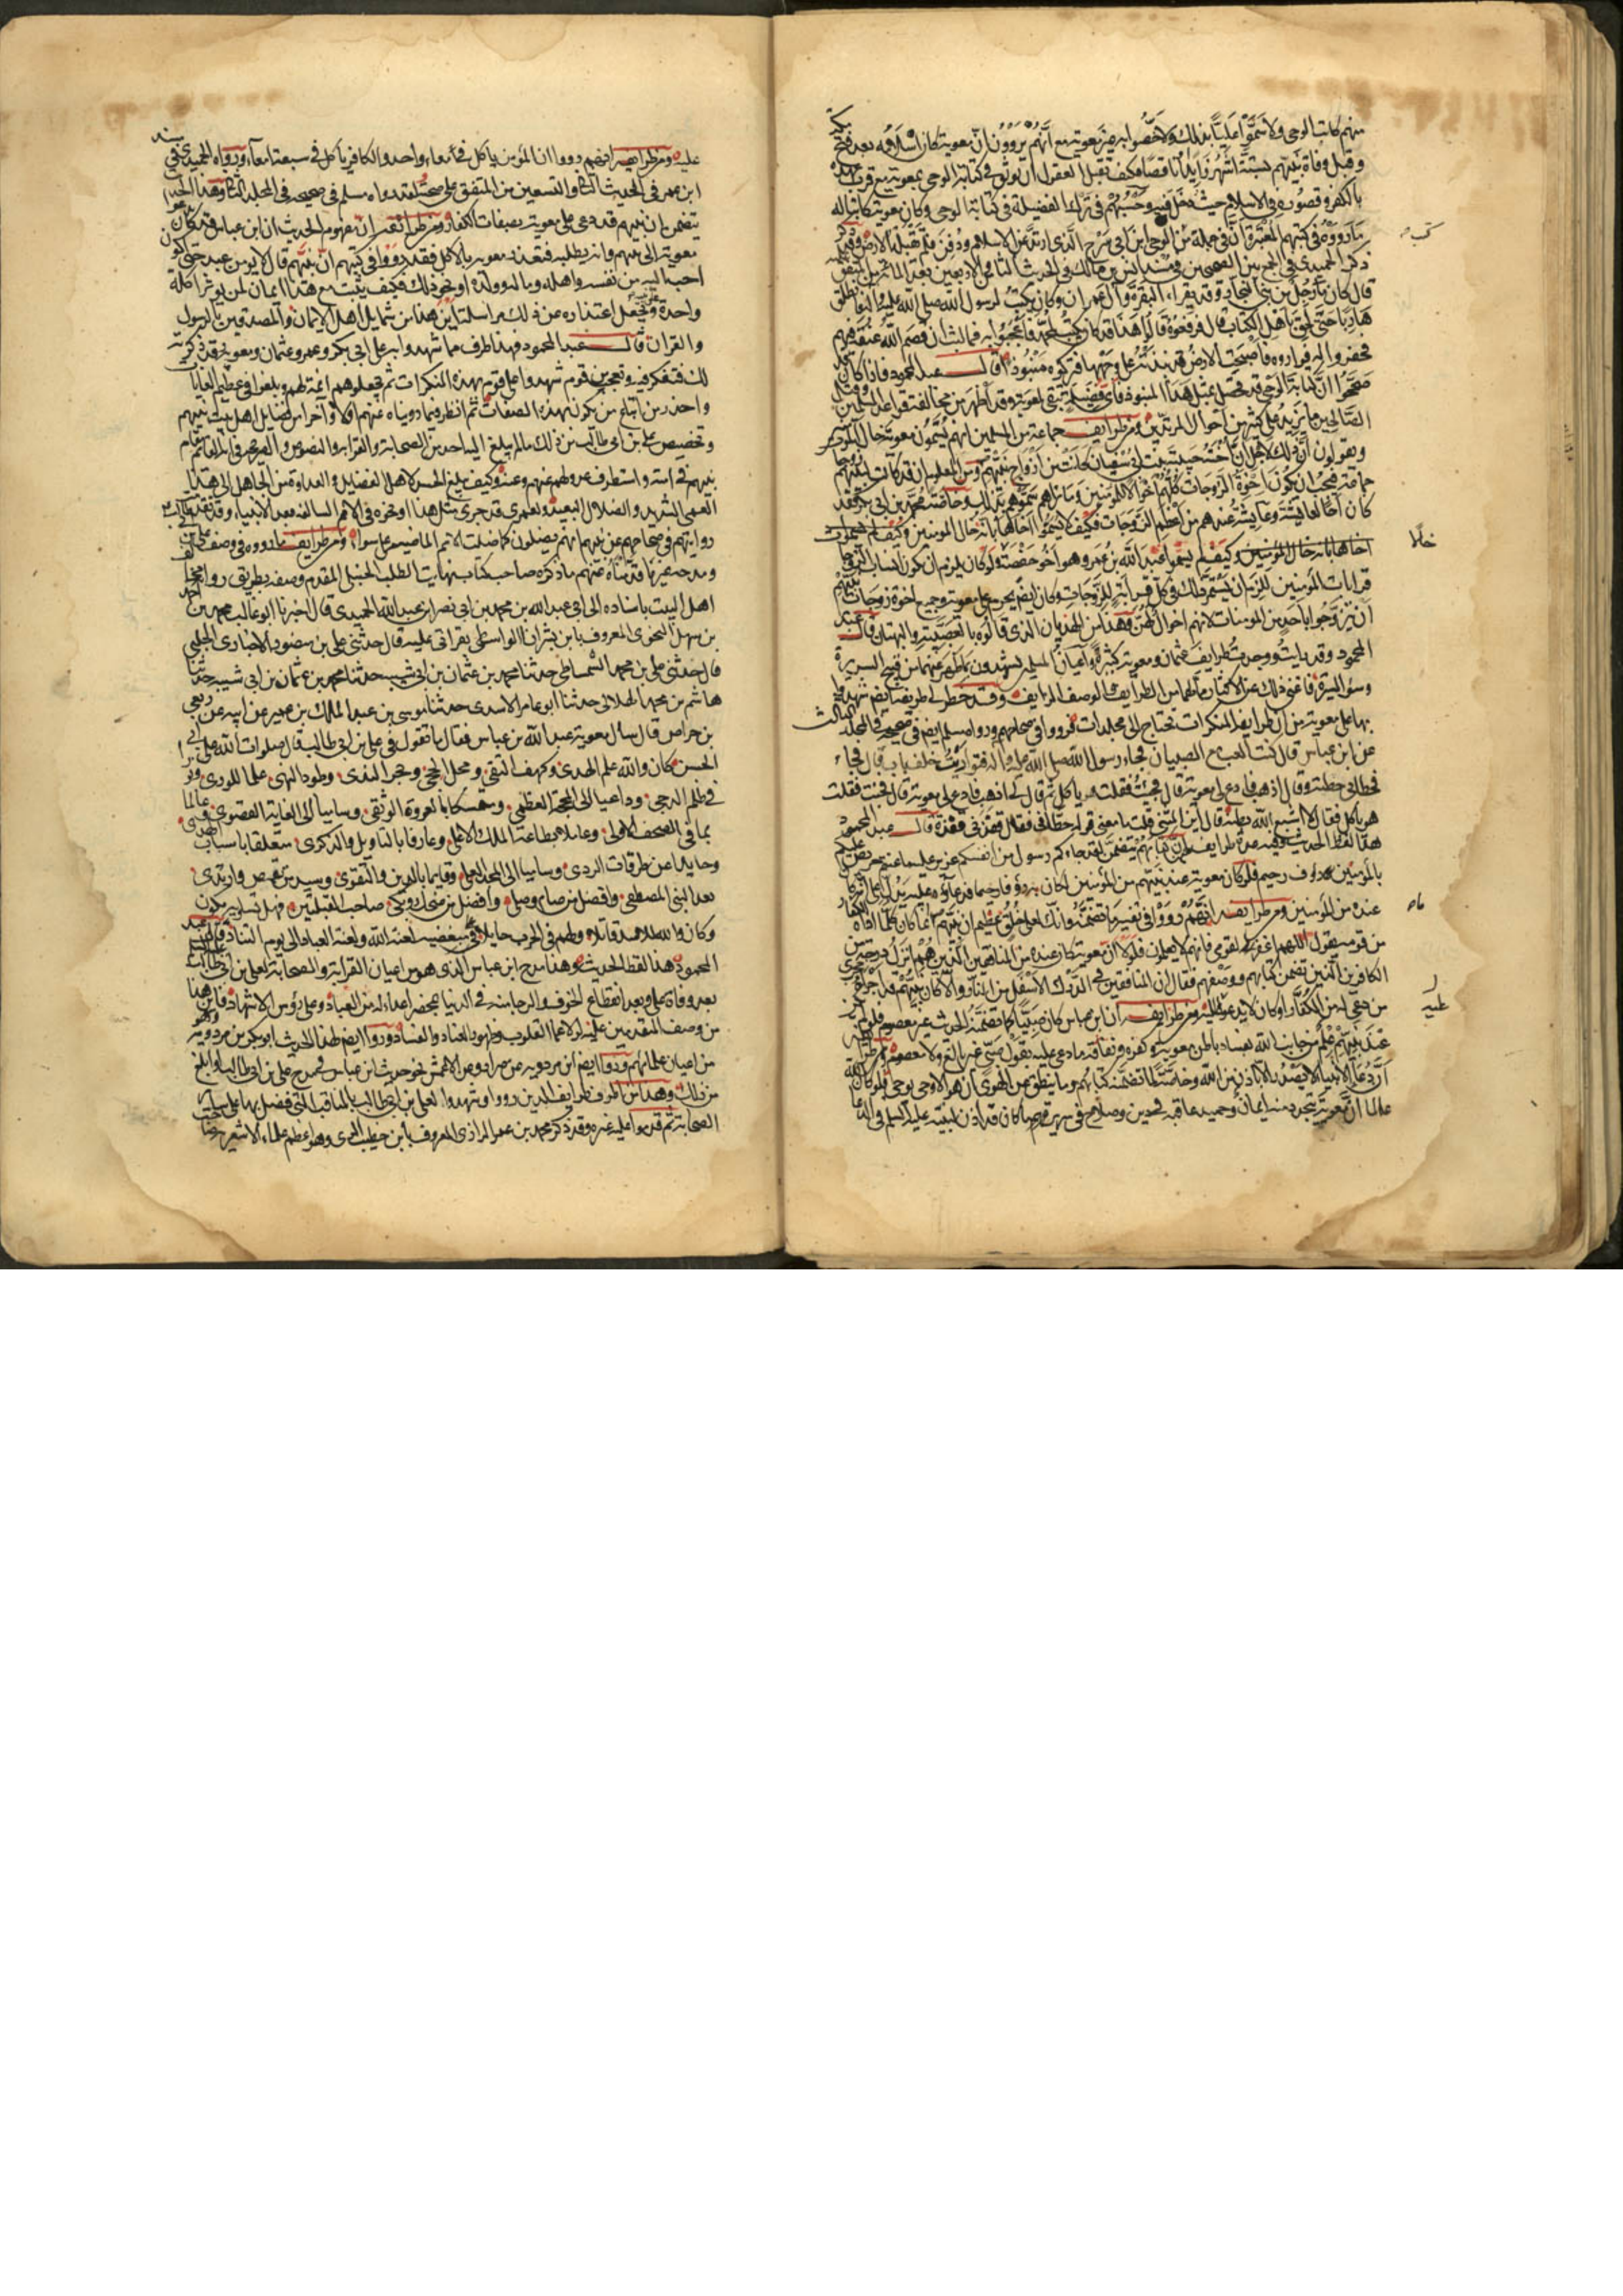 منهم كاتب الوحى ولا سموا عليا بذلك ولا خصوا به غير معوية مع انهم يروون ان معوية كان اسلامه بعد فتح مكة
وقبل وفاة نبيهم بستة اشهر زايدا ناقصا فكيف تقبل العقول ان يوثق فى كتابة الوحى بمعوية مع قرب عهده
بالكفر وقصوره فى الاسلام حيث دخل فيه وحسبهم فى ترك الفضيلة فى كتابة الوحى وكان معوية كاتبا له
ما رووه فى كتبهم المعتبرة ان فى جملة من كتب الوحى ابن ابى سرح الذى ارتد عن الاسلام ودفن فلم تقبله الارض وقد
ذكر الحميدى فى الجمع بين الصحيحين فى مسند انس بن مالك فى الحديث الثامن الاربعين بعد المائة من المتفق عليه
قال كان منا رجل من بنى النجار وقد قراء البقرة وآل عمران وكان يكتب لرسول الله صلى الله عليه وآله فانطلق
هاربا حتى لحق باهل الكتاب قال فرفعوه قالوا هذا قد كان يكتب لمحمد فاعجبوا به فما لبث ان قصم الله عنقه فيهم
فحفروا له فواروه فاصبحت الارض قد نبذته على وجهها فتركوه منبوذا قال عبد المحمود فاذا كان قد
صححوا ان كتابة الوحى قد تحصل لمثل هذا المنبوذ فاى فضيلة تبقى لمعوية وقد اظهر من مخالفته قواعد المسلمين وقتل
الصالحين ما يزيد على كثير من احوال المرتدين ومن طرايف جماعة من المسلمين انهم يسمون معوية خال المؤمنين
ويقولون ان ذلك لاجل ان اخته حبيبة بنت ابى سفيان كانت من ازواج نبيهم ومن المعلوم ان قد كانت لنبيهم زوجات
جماعة فيجب ان يكون اخوة الزوجات كلهم اخوالا للمؤمنين وما نراهم سموهم بذلك وخاصة محمد بن ابى بكر فقد
كان اخا لعايشة وعايشة عندهم من اعظم الزوجات فكيف لا يسموا اخاها بانه خال المؤمنين وكيف لم يسموا
اخاها بانه خال المؤمنين وكيف لم يسموا عبد الله بن عمر وهو اخو حفصة ولو كان يلزم ان يكون انساب الزوجات
قرابات المؤمنين للزم ان يستمر ذلك فى كل قرابة للزوجات وكان ايضم يحرم على معوية وجميع اخوة زوجات نبيهم
ان يتزوجوا باحد من المؤمنات لانهم اخوال لهن وهذا من الهذيان الذى قالوه بالعصبية والبهتان قال عبد
المحمود وقد رايت ووجدت طرايف عثمان ومعوية كثيرة واعيان المسلمين يشهدون بما ظهر عنهما من قبح السيرة
وسوء السريرة فاغنى ذلك عن الاكثار مما لهما من الطرايف والوصف الزايف وقد خطر لى طريفة ايضم شهدوا
بها على معوية من ان طرايفه المنكرات تحتاج الى مجلدات فرووا فى صحاحهم وروا مسلم ايضم فى صحيحه فى المجلد الثالث
عن ابن عباس قال كنت العب مع الصبيان فجاء رسول الله صلى الله عليه وآله فتواريت خلف باب قال فجاء
فحطانى حطئة وقال اذهب فادع لى معوية قال فجئت فقلت هو ياكل ثم قال لى اذهب فادع لى معوية قال فجئت فقلت
هو ياكل فقال لا اشبع الله بطنه قال ابن المثنى قلت ما معنى قوله حطانى فقال قفزنى قفزة قال عبد المحمود
هذا لفظ الحديث وفيه عدة طرايف فمن كتابهم يتضمن لقد جاءكم رسول من انفسكم عزيز عليه ما عنتم حريص عليكم
بالمؤمنين رؤف رحيم فلو كان معوية عند نبيهم من المؤمنين لكان به رؤفا رحيما فدعاؤه عليه يدل على انه كان
عنده من المؤمنين ومن طرايف انهم رووا فى تفسير ما تضمنه وانك لعلى خلق عظيم ان نبيهم انما كان كلما اذاه الكفار
من قومه يقول اللهم اغفر لقومى فانهم لا يعلمون فلولا ان معوية كان عنده من المنافقين الذين هم انزل درجة من
الكافرين الذين تضمن كتابهم ووصفهم فقال ان المنافقين فى الدرك الاسفل من النار والا كان نبيهم قد اجراه مجرى
من دعى له من الكفار او كان لا يدعو عليه ومن طرايف ان ابن عباس كان صبيا كما تضمنه الحديث غير معصوم فلولم يكن
عند نبيهم علم من جانب الله بفساد باطن معوية وكفره ونفاقه ما دعى عليه بقول صبى غير بالغ ولا معصوم ومن طرايفه
ان دعاء الانبياء لا يصدر الا باذن من الله وخاصة لما تضمنه كتابهم وما ينطق عن الهوى ان هو الا وحى يوحى فلو كان الله
عالما ان معوية يتجدد منه ايمان وحميد عاقبة فى دين وصلاح فى سريرة ما كان قد اذن لنبيه عليه السلم فى الدعاء
كتب
خالا
ماه
عليه
عليه ومن طرايف ايضم انهم رووا ان المؤمن ياكل فى معاء واحد والكافر ياكل فى سبعة امعاء ورواه الحميدى فى مسند
ابن عمر فى الحديث الثانى والتسعين من المتفق على صحته لقد رواه مسلم فى صحيحه فى المجلد الثالث وهذا الحديث
يتضمن ان نبيهم قد دعى على معوية بصفات الكفار ومن طرايف ان مفهوم الحديث ان ابن عباس قد كان دعوا
معوية الى نبيهم وانه يطلبه فتعذر معوية بالاكل فقد رووا فى كتبهم ان نبيهم قال لا يؤمن عبد حتى اكون
احب اليه من نفسه واهله وماله وولده او نحو ذلك فكيف يثبت مع هذا ايمان لمن يؤثر اكلة
واحدة ويجعل اعتذاره عن ذلك مراسلة اين هذا من شمايل اهل الايمان والمصدقين بالرسول
والقران قال عبد المحمود فهذا طرف مما شهدوا به على ابى بكر وعمر وعثمان ومعوية قد ذكرته
لك فتفكر فيه وتعجب من قوم شهدوا على قوم بهذه المنكرات ثم جعلوهم ائمة لهم وبلغوا فى تعظيم الغايات
واحذر من اتباع من يكون بهذه الصفات ثم انظر فيما رويناه عنهم اولا وآخرا من فضايل اهل بيت نبيهم
وتخصيص على بن ابى طالب من ذلك ما لم يبلغ اليه احد من الصحابة والقرابة
نبيهم فى امته واستطرف عدولهم عنهم وعنه وكيف بلغ الحسد لاهل الفضايل والعداوة من الجاهل الى هذا
العمى الشديد والضلال البعيد ولعمرى قد جرى مثل هذا او نحوه فى الامم السالفة مع الانبياء
روايتهم فى صحاحهم عن نبيهم انهم يضلون كما ضلت الامم الماضية على سواء ومن طرايف ما رووه فى وصف على
ومدحه ما ذكره صاحب كتاب نهايت الطلب الحنبلى المقدم وصفه بطريق
اهل البيت باسناده الى ابى عبد الله بن محمد بن ابى نصر بن عبد الله الحميدى قال اخبرنا ابو غالب محمد بن احمد
بن سهل النحوى المعروف بابن بشران الواسطى بقراتى عليه قال حدثنى على بن منصور الاخبارى الحلبى
قال حدثنى على بن محمد الشمشاطى حدثنا محمد بن عثمان بن ابى شيبه حدثنا محمد بن عثمان بن ابى شيبه حدثنا
هاشم بن محمد الهلالى حدثنا ابو عامر الاسدى حدثنا موسى بن عبد الملك بن عمير عن ابيه عن ربعى
بن حراص قال سال معوية عبد الله بن عباس فقال ما تقول فى على بن ابى طالب قال صلوات الله على ابى
الحسن كان والله علم الهدى وكهف التقى ومحل الحجى وبحر الندى وطود النهى علما للورى ونورا
فى ظلم الدجى وداعيا الى المحجة العظمى ومتمسكا بالعروة الوثقى وساميا الى الغاية القصوى وعالما
بما فى الصحف الاولى وعاملا بطاعة الملك الاعلى وعارفا بالتاويل والذكرى متعلقا باسباب الهدى
وحايدا عن طرقات الردى وساميا الى المجد العلى وقايما بالدين والتقوى وسيد من تقمص وارتدى
بعد النبى المصطفى وافضل من صام وصلى وافضل من ضحك وبكى صاحب القبلتين فهل يساويه مخلوق
وكان والله للاسد قاتلا ولهم فى الحرب حايلا على مبغضيه لعنة الله ولعنة العباد الى يوم التناد قال عبد
المحمود هذا لفظ الحديث وهذا مدح ابن عباس الذى هو من اعيان القرابة والصحابة لعلى بن ابى طالب
بعد وفاة على وبعد انقطاع الخوف والرجا منه فى الدنيا بمحضر اعداء له من العباد وعلى رؤس الاشهاد فاين هذا
من وصف المتقدمين عليه لولا عمى القلوب وظهور العناد والفساد ورووا ايضم هذا الحديث ابو بكر بن مردويه وهو
من اعيان علمائهم ورووا ايضم ابن مردويه عن الاعمش نحو حديث ابن عباس فى مدح على بن ابى طالب او ابلغ
من ذلك وهذا من اطرف طرايف الذين رووا وشهدوا لعلى بن ابى طالب بالمناقب التى فضل بها على ساير
الصحابة ثم قدموا عليه غيره وقد ذكر محمد بن عمر الرازى المعروف بابن خطيب الرى وهو اعظم علماء الاشعرية